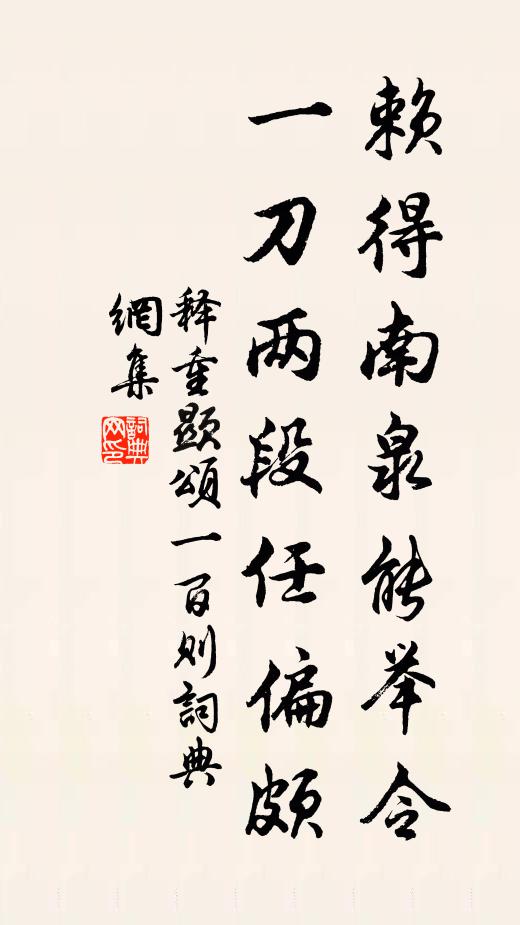 赖得南泉能举令
一刀两段任偏颇
释重顕頌一百则詞典
網集
詞典
网印